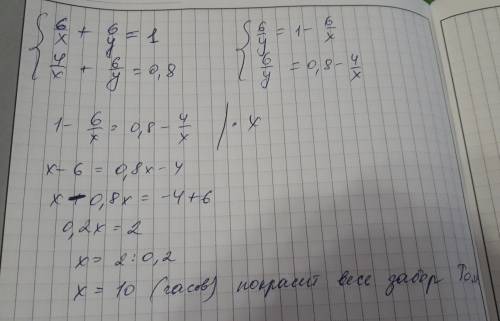 { 6/x + 6/y = 1
4/x + 6/y = 0,8
{ 6/y = 1 - 6/x
6/y = 0,8 - 4/x
1 - 6/x = 0,8 - 4/x | · x
x - 6 = 0,8x - 4
x - 0,8x = -4 + 6
0,2x = 2
x = 2 : 0,2
x = 10 (часов) покрасит весь забор Том